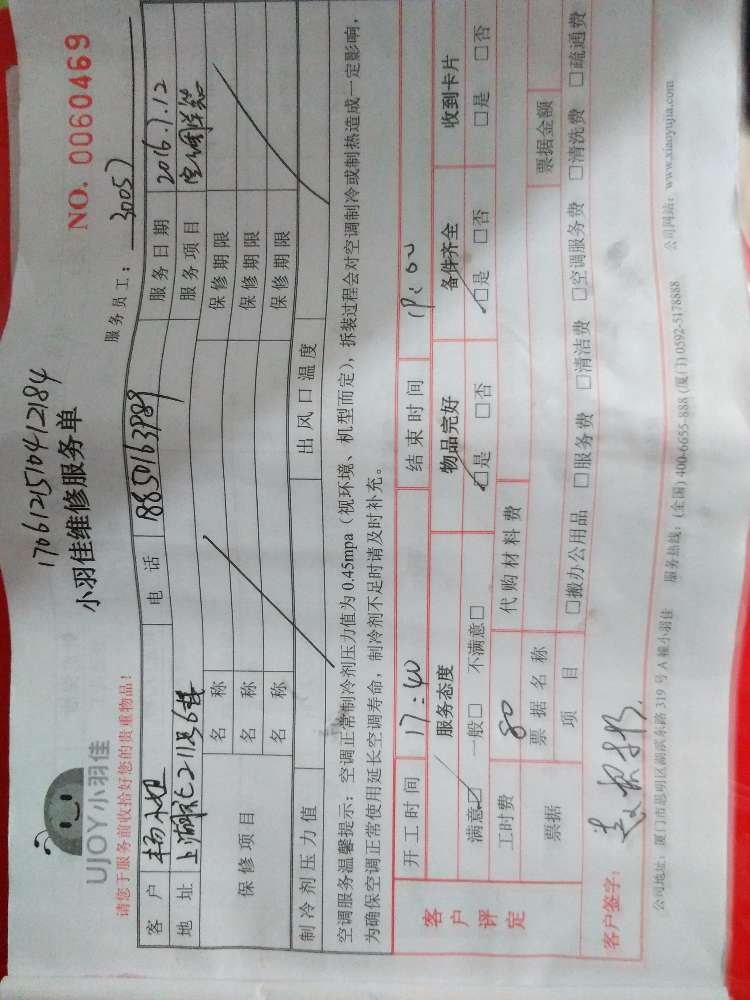 1706121510412184
小羽佳维修服务单
NO. 0060469
UJOY小羽佳
请您于服务前收拾好您的贵重物品!
服务员工: 30057
客户 杨小姐 电话 18850163989 服务日期 2016.7.12
地址 服务项目
保修项目 名称 保修期限
名称 保修期限
名称 保修期限
制冷剂压力值 出风口温度
空调服务温馨提示:空调正常制冷剂压力值为0.45mpa(视环境、机型而定),拆装过程会对空调制冷或制热造成一定影响,
为确保空调正常使用延长空调寿命,制冷剂不足时请及时补充。
客户评定
开工时间 17:40 结束时间
服务态度 物品完好 备件齐全 收到卡片
满意☑ 一般□ 不满意□ ☑是 □否 ☑是 □否 □是 □否
工时费 80 代购材料费
票据 票据名称 票据金额
项目 □搬办公用品 □服务费 □清洁费 □空调服务费 □清洗费 □疏通费
客户签字:
公司地址:厦门市思明区湖滨东路319号A幢小羽佳 服务热线:(全国) 400-6655-888 (厦门) 0592-5178888 公司网站:www.xiaoyujia.com